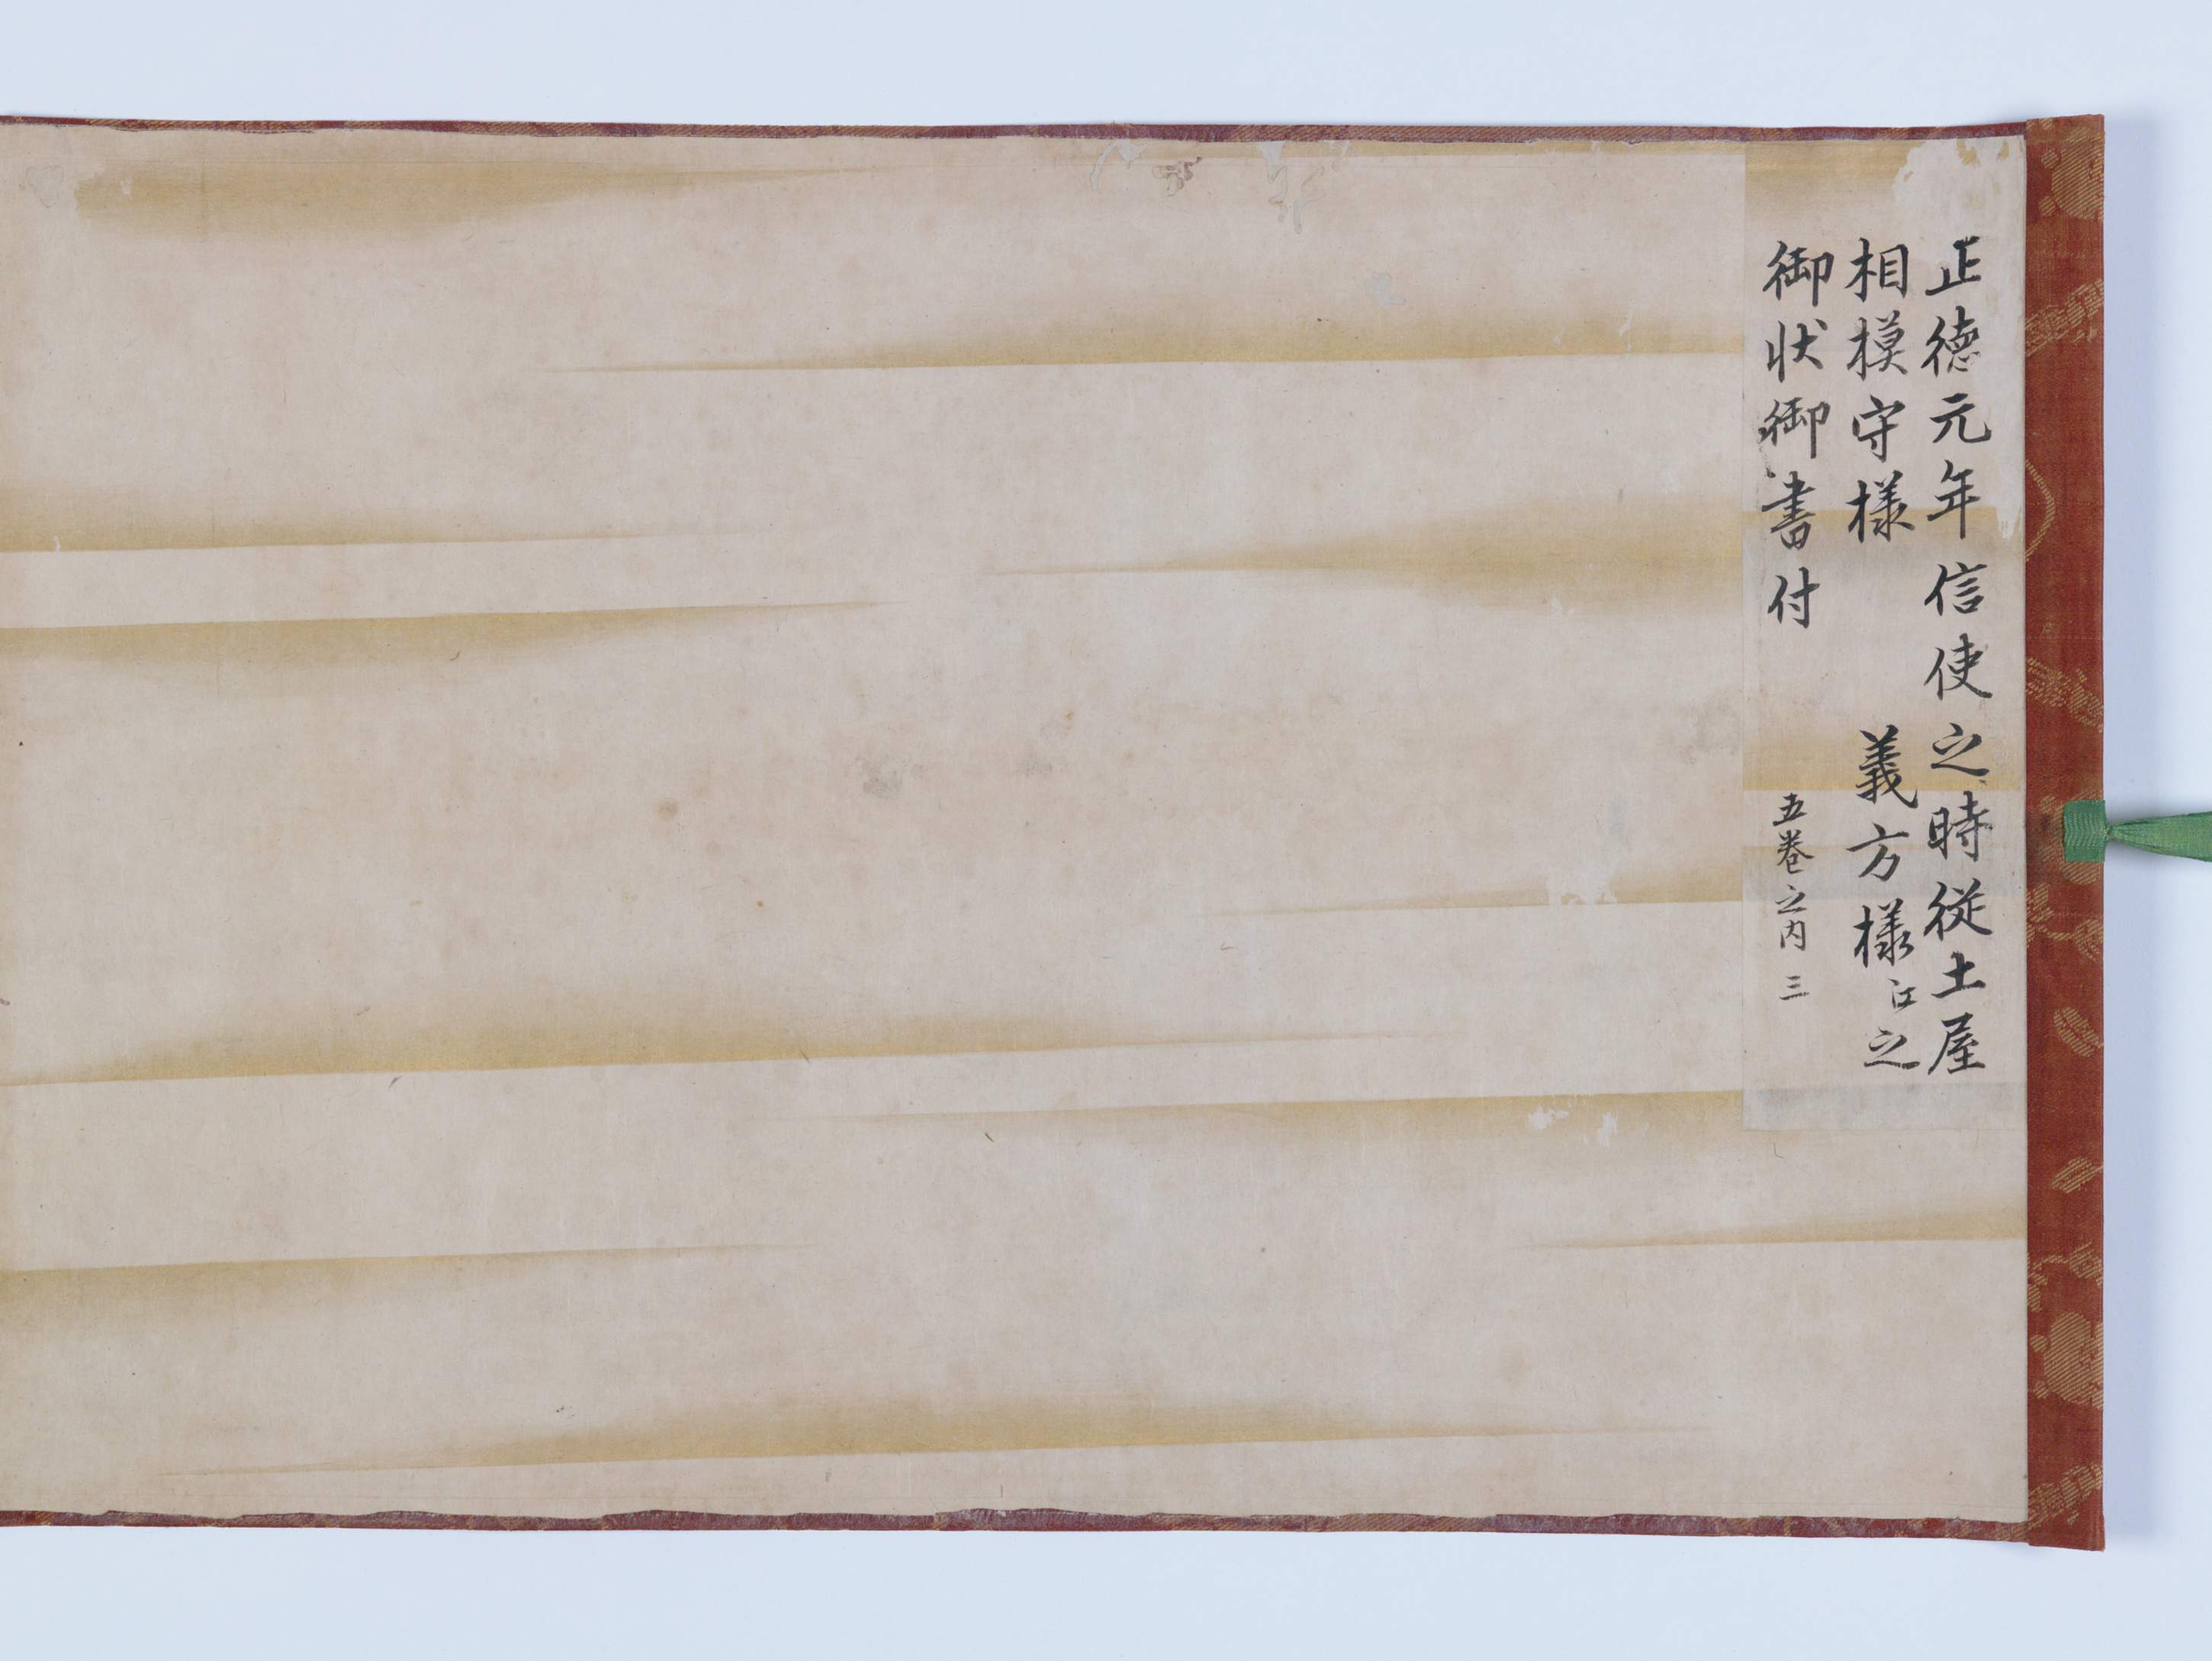 正徳元年信使之時従土屋
相模守様　義方様江之
御状御書付
五巻之内　三